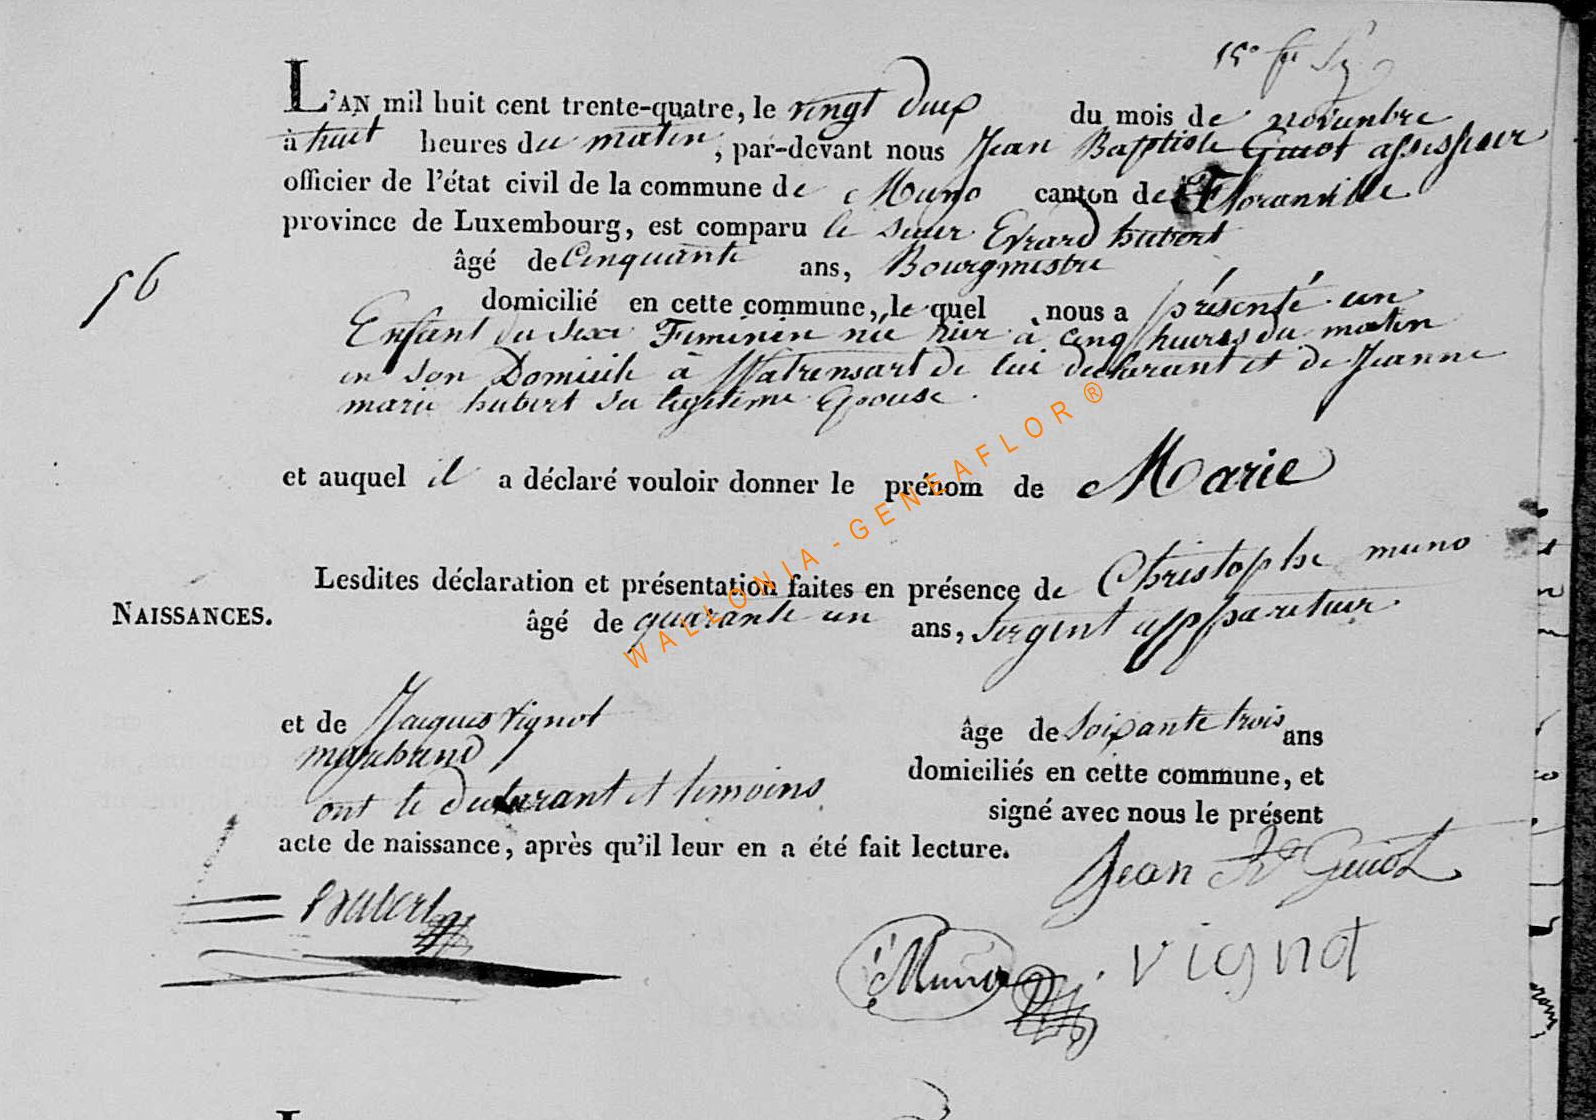 15e
L'AN mil huit cent trente-quatre, le vingt deux du mois de novembre
à huit heures du matin, par-devant nous Jean Baptiste Guiot assesseur
officier de l'état civil de la commune de Muno canton de Floranville
province de Luxembourg, est comparu le sieur Evrard hubert
âgé de Cinquante ans, Bourgmestre
56
domicilié en cette commune, le quel nous a présenté un
Enfant du sexe Feminin née hier à cinq heures du matin
en son Domicile à Watrensart de lui declarant et de Jeanne
marie hubert sa legitime Epouse.
et auquel il a déclaré vouloir donner le prénom de Marie
WALLONIA-GENEAFLOR®
Lesdites déclaration et présentation faites en présence de Christophe muno
NAISSANCES.
âgé de quarante un ans, Sergent appariteur
et de Jacques vignot âge de Soixante trois ans
domiciliés en cette commune, et
ont le declarant et temoins signé avec nous le présent
acte de naissance, après qu'il leur en a été fait lecture.
Jean Bte Guiot
hubert
Muno
vignot